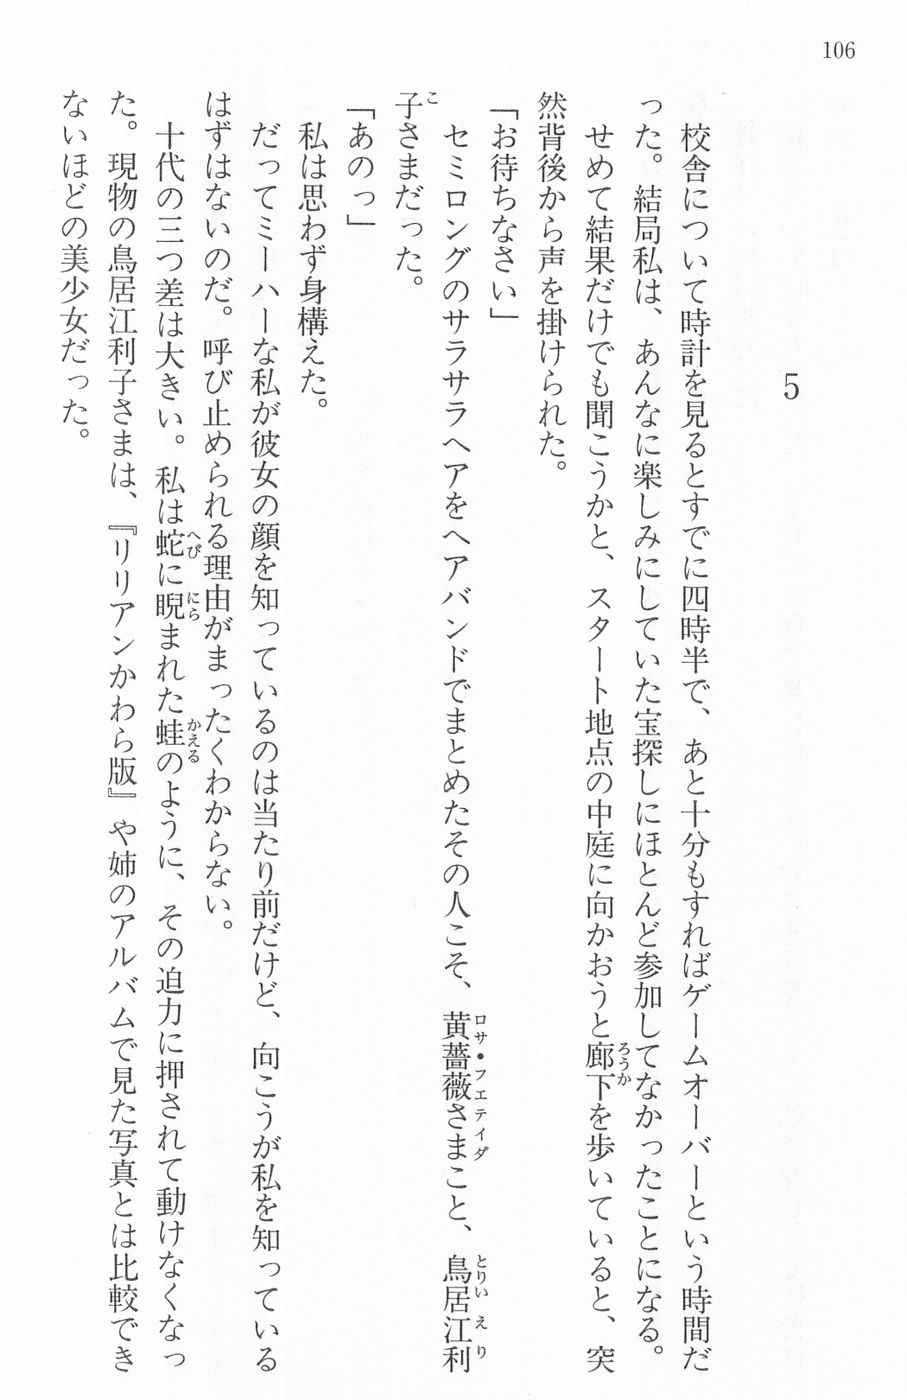 106
5
校舎について時計を見るとすでに四時半で、あと十分もすればゲームオーバーという時間だ
った。結局私は、あんなに楽しみにしていた宝探しにほとんど参加してなかったことになる。
せめて結果だけでも聞こうかと、スタート地点の中庭に向かおうと廊下を歩いていると、突
然背後から声を掛けられた。
「お待ちなさい」
セミロングのサラサラヘアをヘアバンドでまとめたその人こそ、黄薔薇さまこと、鳥居江利
子さまだった。
「あのっ」
私は思わず身構えた。
だってミーハーな私が彼女の顔を知っているのは当たり前だけど、向こうが私を知っている
はずはないのだ。呼び止められる理由がまったくわからない。
十代の三つ差は大きい。私は蛇に睨まれた蛙のように、その迫力に押されて動けなくなっ
た。現物の鳥居江利子さまは、『リリアンかわら版』や姉のアルバムで見た写真とは比較でき
ないほどの美少女だった。